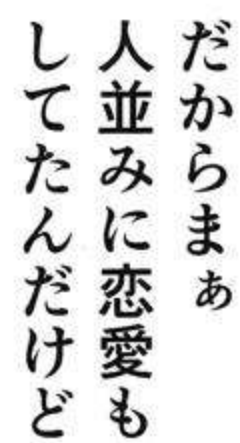 だからまぁ
人並みに恋愛も
してたんだけど